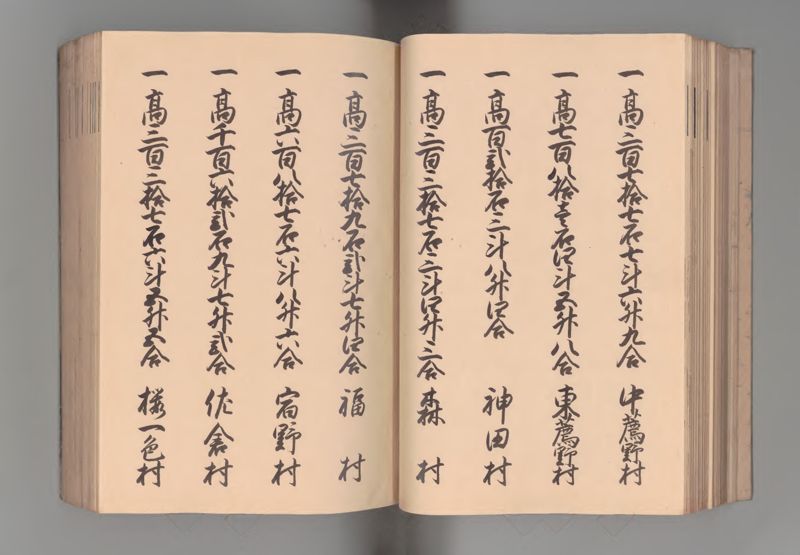 一高三百七拾七石七斗六升九合 中薦野村
一高七百八拾壱石四斗五升八合 東薦野村
一高百弐拾石三斗八升四合 神田村
一高三百三拾七石三斗四升三合 森村
一高三百七拾九石弐斗七升四合 福村
一高六百八拾七石六斗八升六合 宿野村
一高千百六拾弐石九斗七升弐合 佐倉村
一高三百三拾七石六斗五升五合 桜一色村